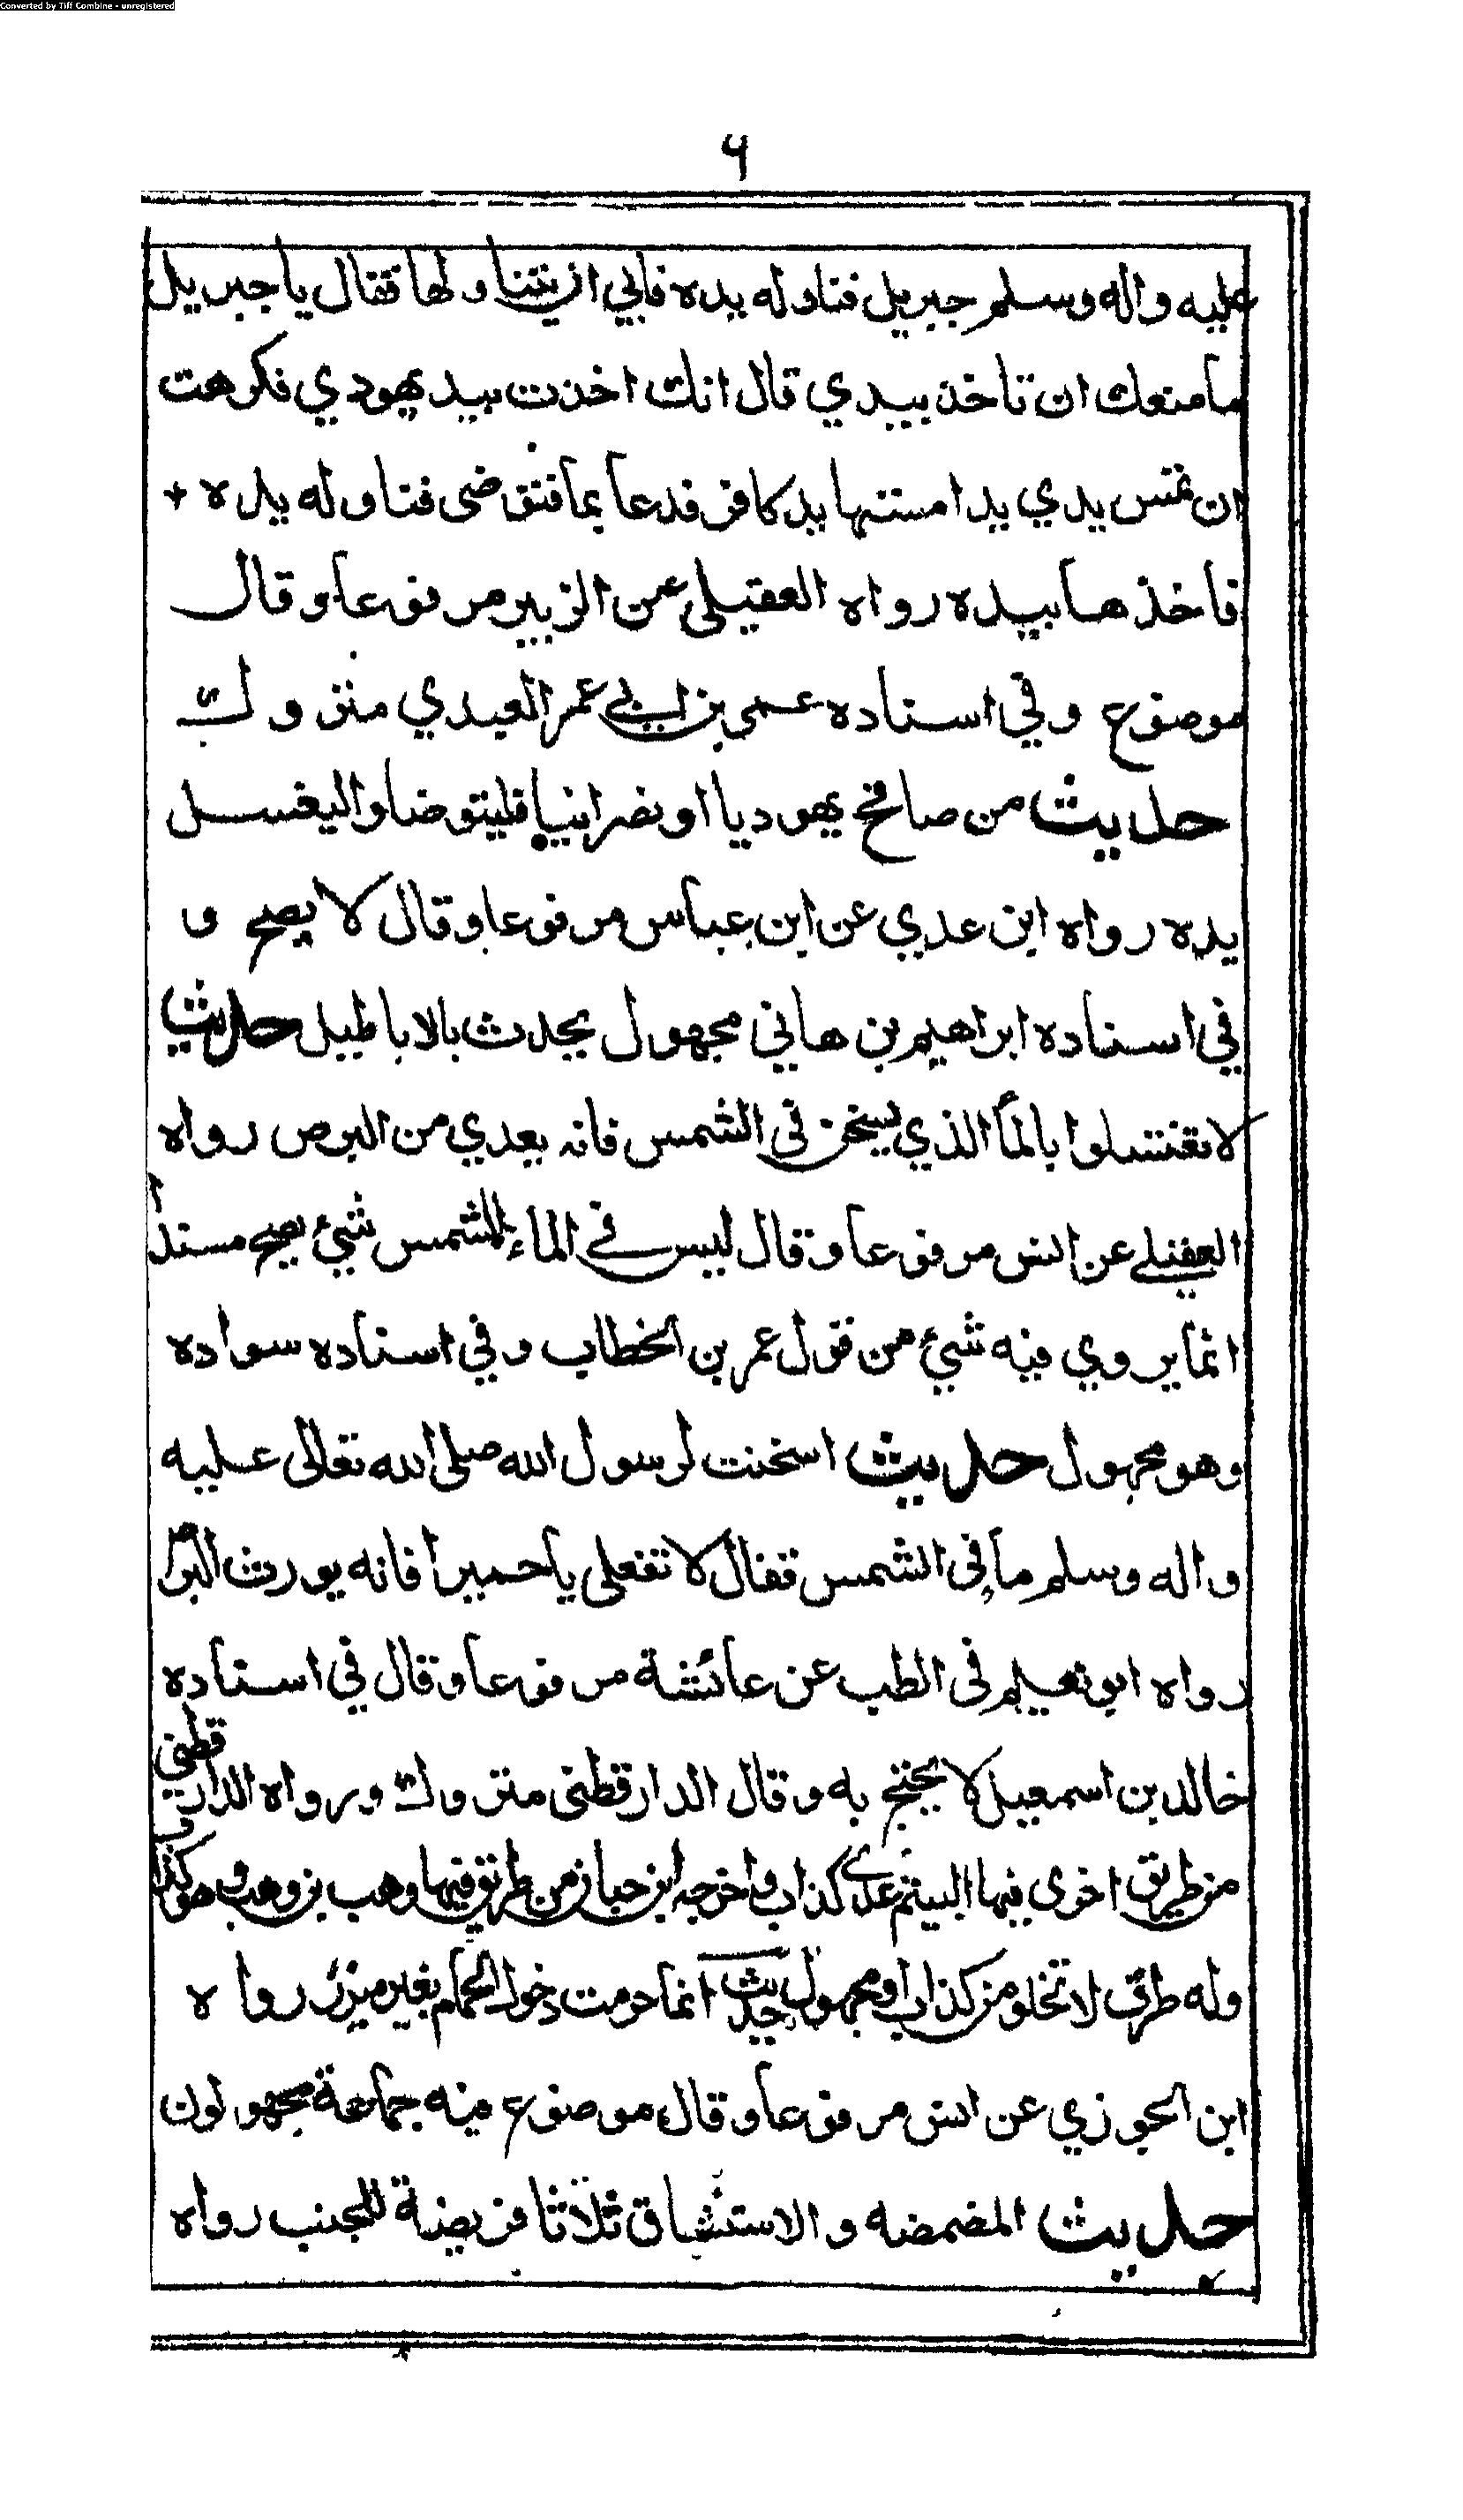 Converted by Tiff Combine - unregistered
٩
عليه واله وسلم جبريل فناوله يده فابي ان يتناولها فقال يا جبريل
ما منعك ان تاخذ بيدي قال انك اخذت بيد يهودي فكرهت
ان تمس يدي يدا مستها يد كافر فدعا بما فتوضى فناوله يده +
فاخذها بيده رواه العقيلي عن الزبير مرفوعا وقال
موضوع وفي اسناده عمر بن ابي عمر العبدي متروك
حديث من صافح يهوديا او نصرانيا فليتوضا واليغسل
يده رواه ابن عدي عن ابن عباس مرفوعا وقال لا يصح و
في اسناده ابراهيم بن هاني مجهول يحدث بالاباطيل حديث
لا تغتسلوا بالمأ الذي يسخن في الشمس فانه يعدي من البرص رواه
العقيلي عن انس مرفوعا وقال ليس في الماء المشمس شيء يصح مسندا
انما يروي فيه شيء من قول عمر بن الخطاب وفي اسناده سواده
وهو مجهول حديث اسخنت لرسول الله صلى الله تعالى عليه
واله وسلم ما في الشمس فقال لا تفعلي يا حميرا فانه يورث البرص
رواه ابو نعيم في الطب عن عائشة مرفوعا وقال في اسناده
خالد بن اسمعيل لا يحتج به وقال الدارقطنى متروك ورواه الدارقطني
من طريق اخرى فيها الهيثم بن عدي كذاب واخرجه ابن حبان من طريق فيها وهب بن وهب وهو كذاب
وله طرق لا تخلو من كذاب او مجهول حديث انما حرمت دخول الحمام بغير ميزر رواه
ابن الجوزي عن انس مرفوعا وقال موضوع فيه جماعة مجهولون
حديث المضمضه والاستنشاق ثلاثا فريضة للجنب رواه